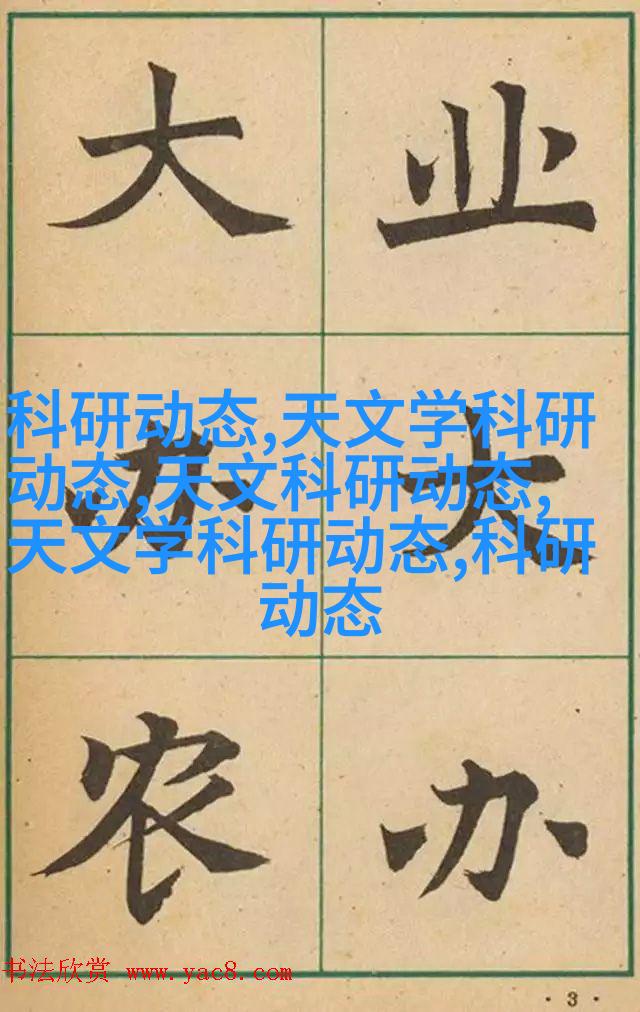 大办农
业大办
科研动态,天文学科研
动态,天文科研动态,
天文学科研动态,科研
动态
书法欣赏 www.yac8.com
·3·